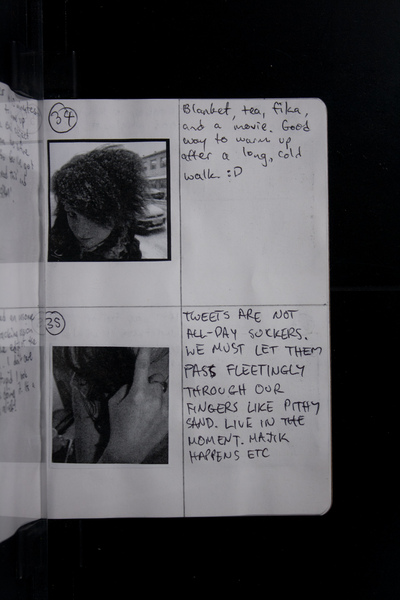 34
Blanket, tea, fika,
and a movie. Good
way to warm up
after a long, cold
walk :D
35
TWEETS ARE NOT
ALL-DAY SUCKERS.
WE MUST LET THEM
PASS FLEETINGLY
THROUGH OUR
FINGERS LIKE PITHY
SAND. LIVE IN THE
MOMENT. MAJIK
HAPPENS ETC